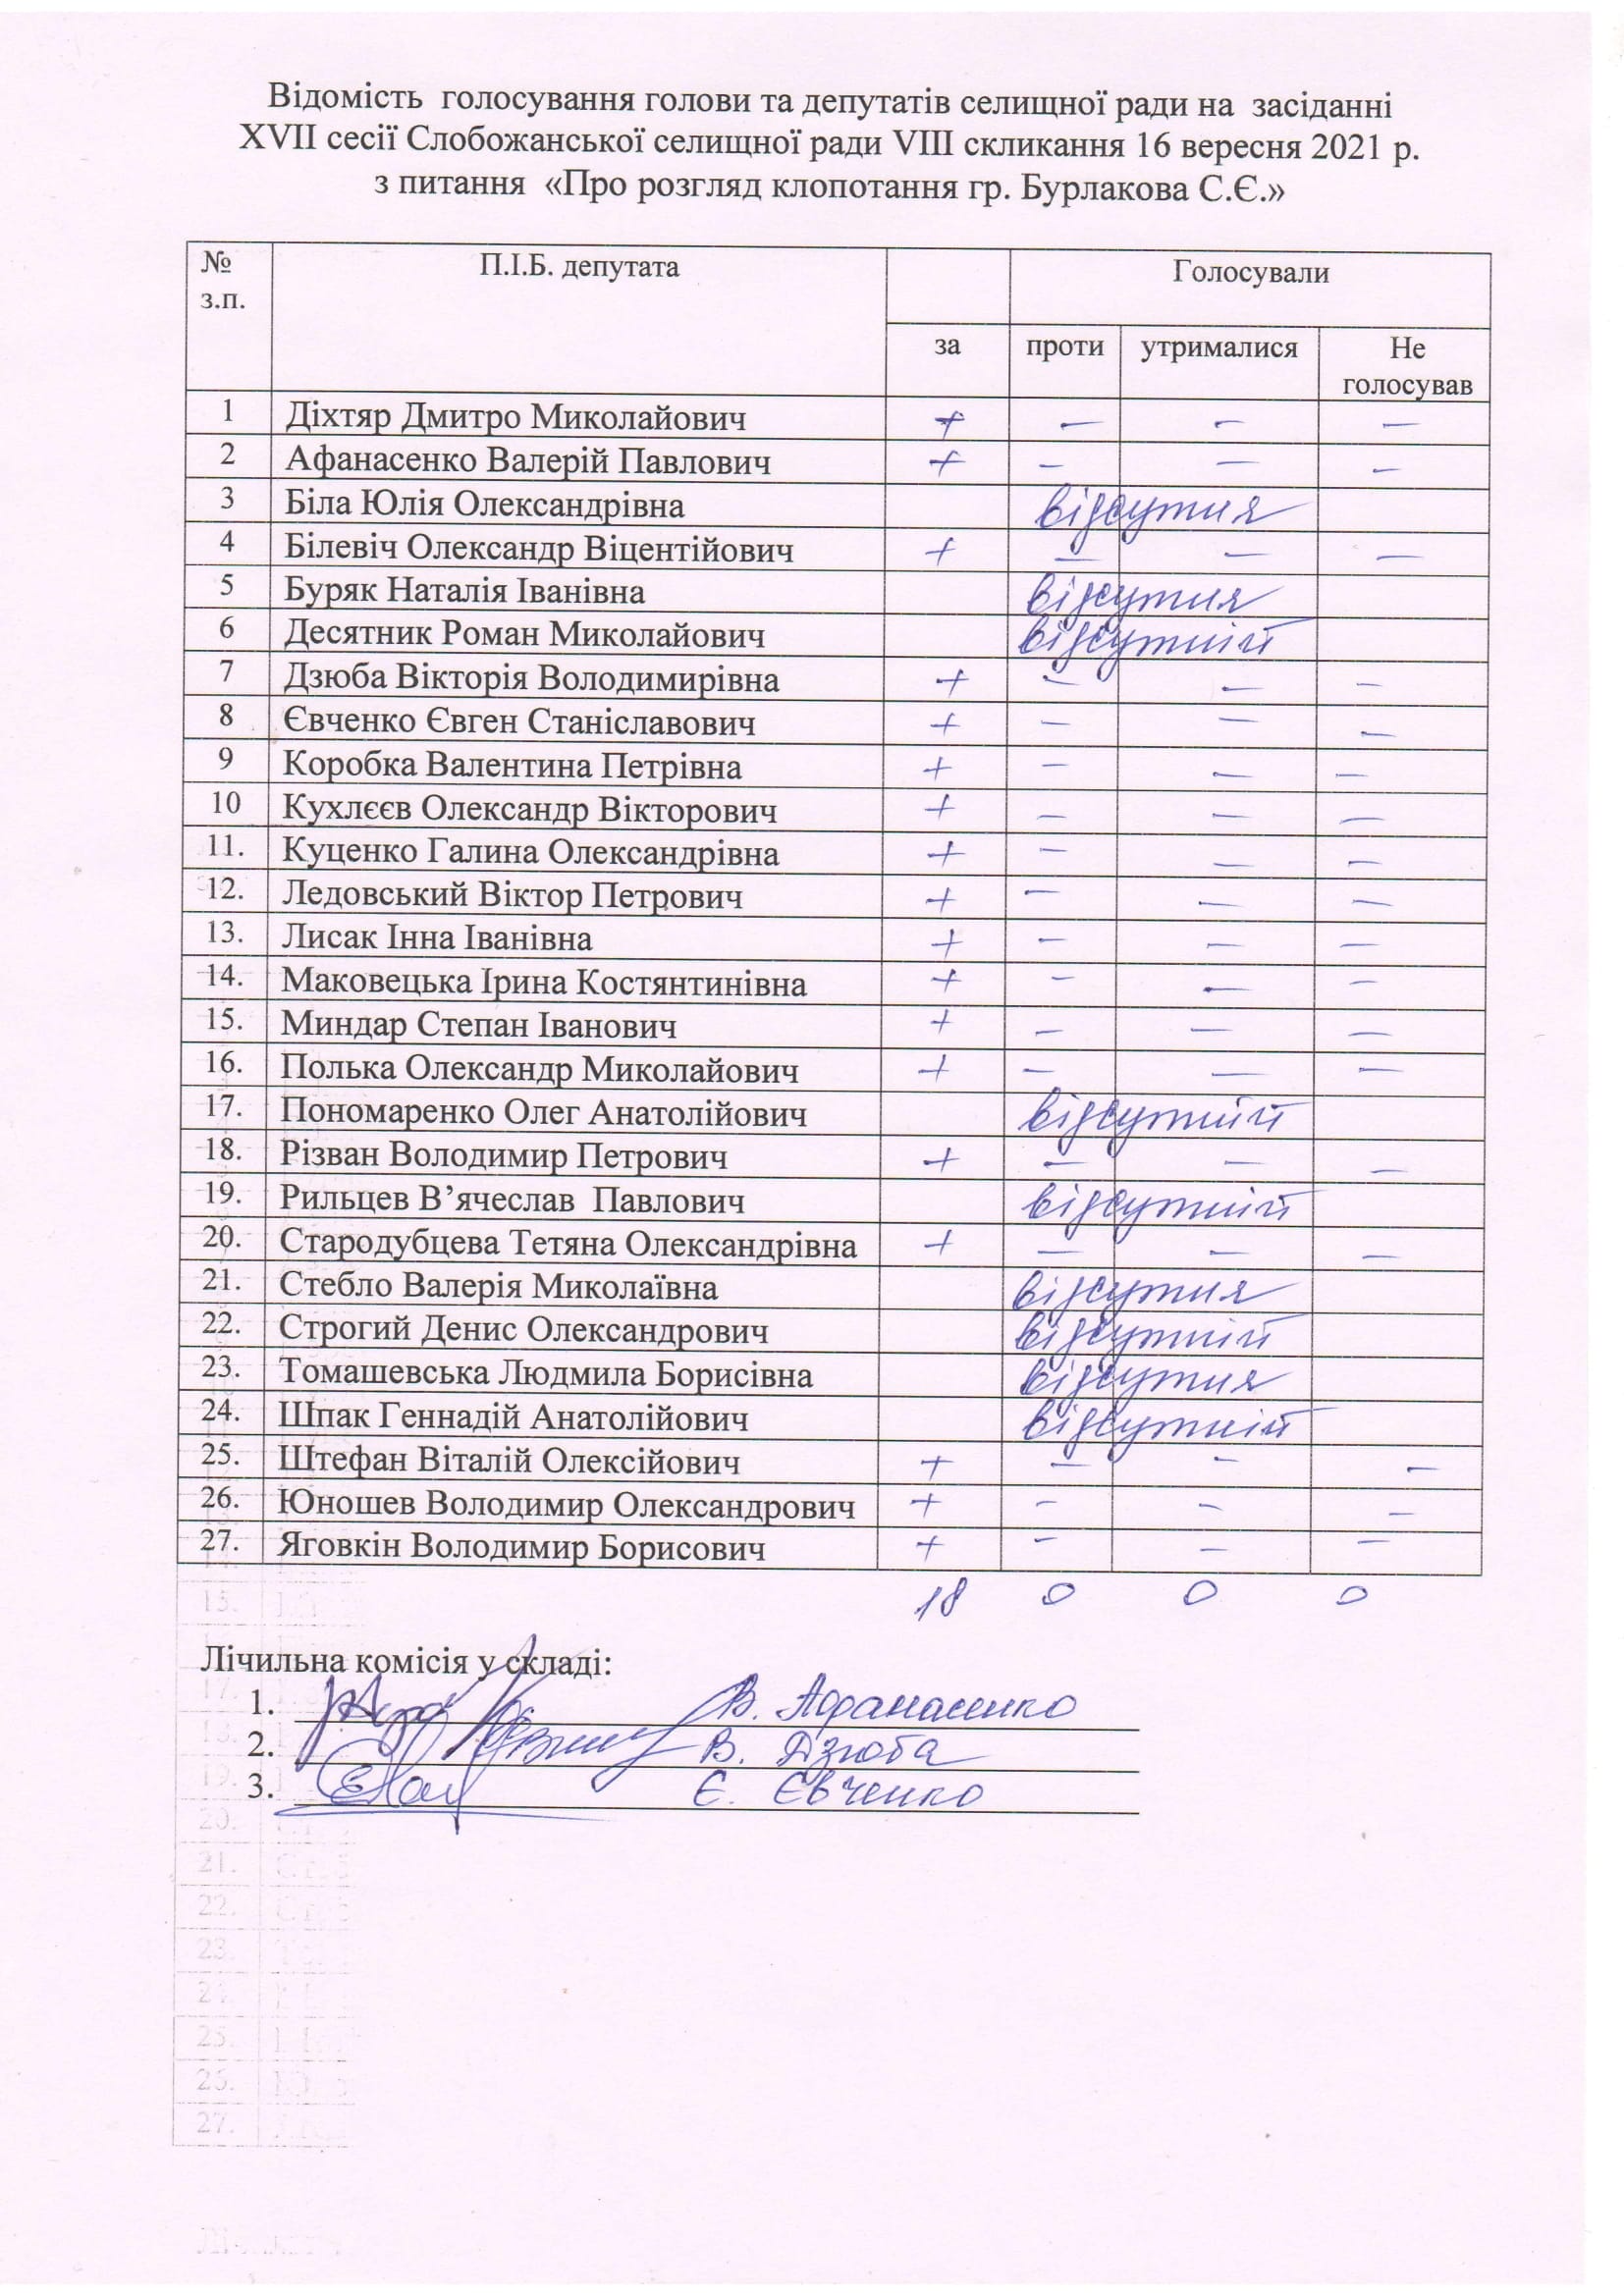 Відомість голосування голови та депутатів селищної ради на засіданні
XVII сесії Слобожанської селищної ради VIII скликання 16 вересня 2021 р.
з питання «Про розгляд клопотання гр. Бурлакова С.Є.»
№ з.п. П.І.Б. депутата Голосували
за проти утрималися Не голосував
1 Діхтяр Дмитро Миколайович + — — —
2 Афанасенко Валерій Павлович + — — —
3 Біла Юлія Олександрівна відсутня
4 Білевіч Олександр Віцентійович + — — —
5 Буряк Наталія Іванівна відсутня
6 Десятник Роман Миколайович відсутній
7 Дзюба Вікторія Володимирівна + — — —
8 Євченко Євген Станіславович + — — —
9 Коробка Валентина Петрівна + — — —
10 Кухлєєв Олександр Вікторович + — — —
11. Куценко Галина Олександрівна + — — —
12. Ледовський Віктор Петрович + — — —
13. Лисак Інна Іванівна + — — —
14. Маковецька Ірина Костянтинівна + — — —
15. Миндар Степан Іванович + — — —
16. Полька Олександр Миколайович + — — —
17. Пономаренко Олег Анатолійович відсутній
18. Різван Володимир Петрович + — — —
19. Рильцев В’ячеслав Павлович відсутній
20. Стародубцева Тетяна Олександрівна + — — —
21. Стебло Валерія Миколаївна відсутня
22. Строгий Денис Олександрович відсутній
23. Томашевська Людмила Борисівна відсутня
24. Шпак Геннадій Анатолійович відсутній
25. Штефан Віталій Олексійович + — — —
26. Юношев Володимир Олександрович + — — —
27. Яговкін Володимир Борисович + — — —
18 0 0 0
Лічильна комісія у складі:
1. В. Афанасенко
2. В. Дзюба
3. Є. Євченко